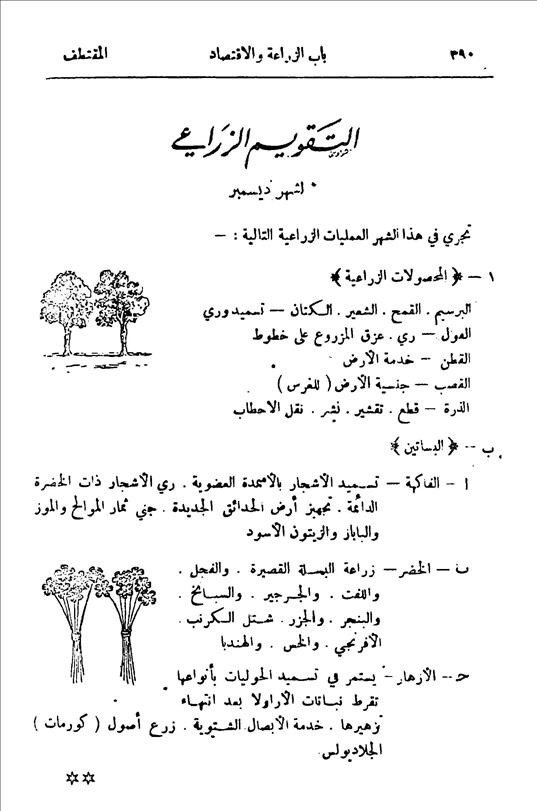 ٣٩٠ باب الزراعة والاقتصاد المقتطف
التقويم الزراعي
لشهر ديسمبر
تجري في هذا الشهر العمليات الزراعية التالية : —
١ — ﴿ المحصولات الزراعية ﴾
البرسيم . القمح . الشعير . الكتان — تسميد وري
الفول — ري . عزق المزروع على خطوط
القطن — خدمة الأرض
القصب — جنسية الأرض ( للغرس )
الذرة — قطع . تقشير . نشر . نقل الاحطاب
ب — ﴿ البساتين ﴾
ا — الفاكهة — تسميد الأشجار بالأسمدة العضوية . ري الأشجار ذات الخضرة
الدائمة . تجهيز أرض الحدائق الجديدة . جني ثمار الموالح والموز
والباباز والزيتون الأسود
ب — الخضر — زراعة البسلة القصيرة . والفجل .
واللفت . والجرجير . والسبانخ .
والبنجر . والجزر . شتل الكرنب .
الأفرنجي . والخس . والهندبا
ج — الأزهار — يستمر في تسميد الحوليات بأنواعها
تقرط نباتات الأراولا بعد انتهاء
تزهيرها . خدمة الأبصال الشتوية . زرع أصول ( كورمات )
الجلاديولس